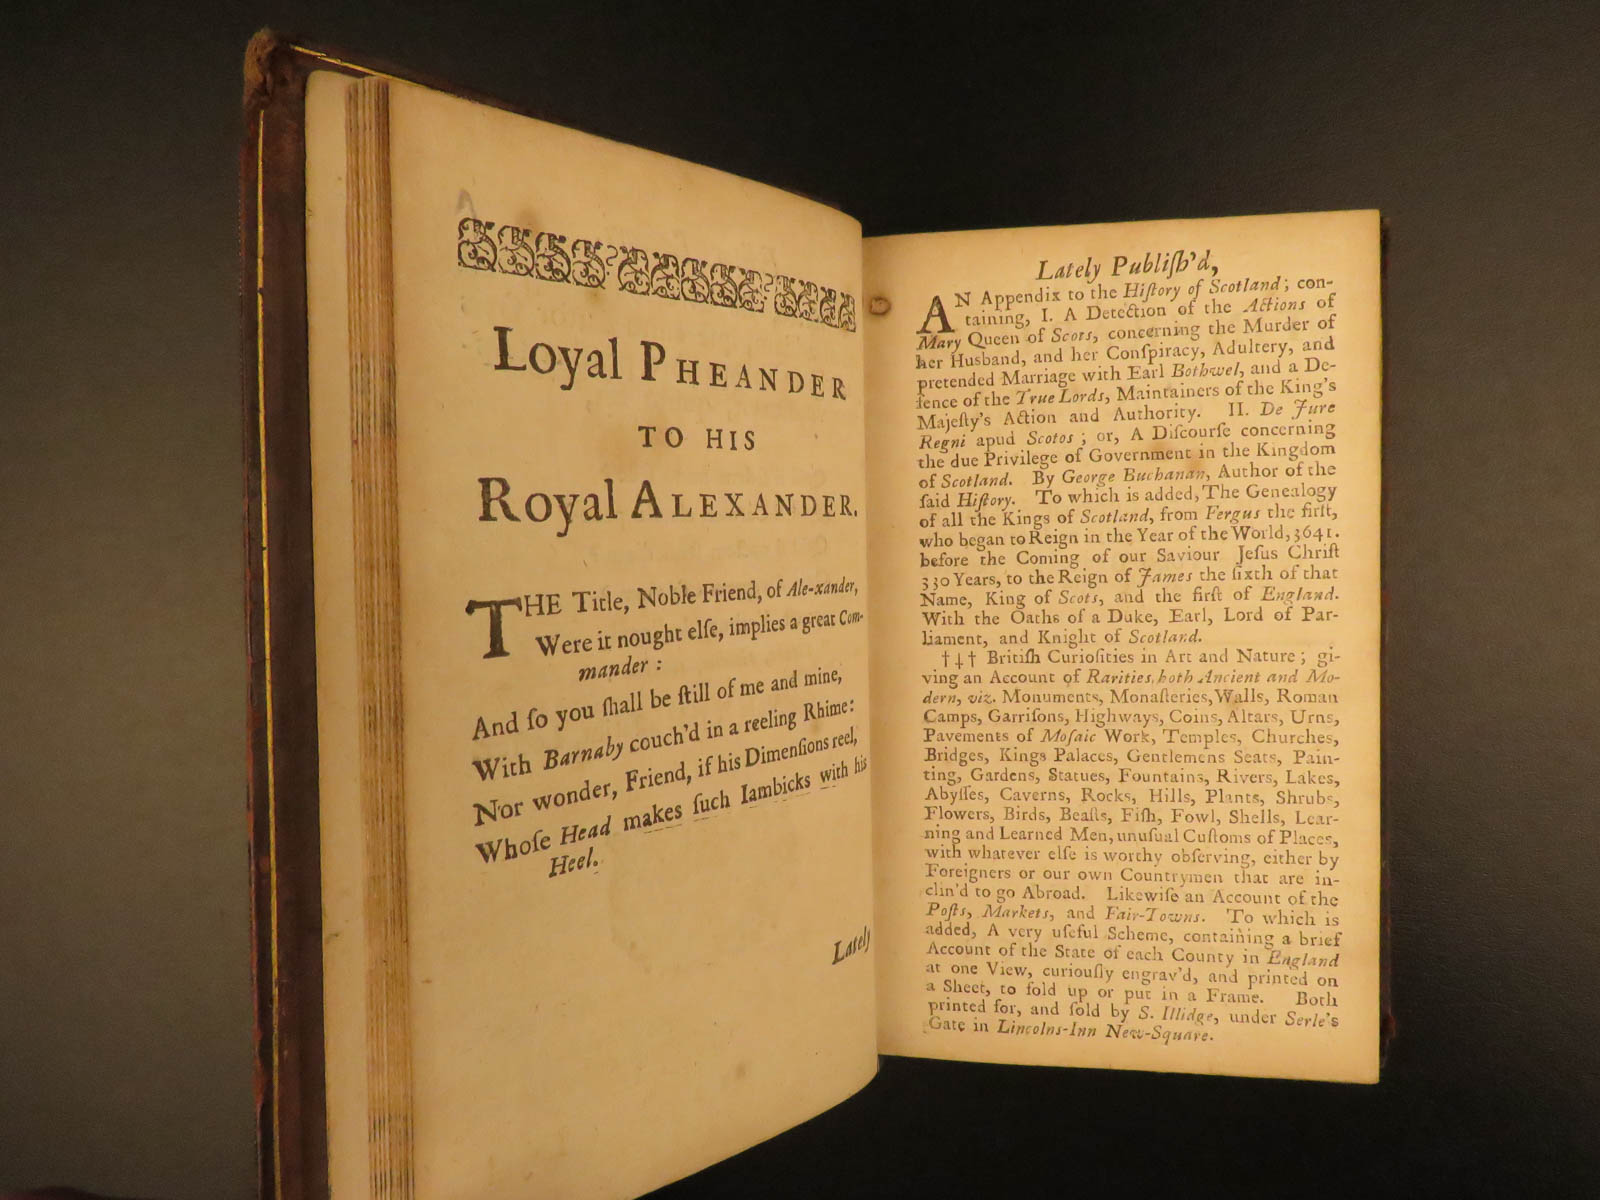 Loyal PHEANDER
TO HIS
Royal ALEXANDER.
THE Title, Noble Friend, of Ale-xander,
Were it nought elſe, implies a great Com-
mander :
And ſo you ſhall be ſtill of me and mine,
With Barnaby couch'd in a reeling Rhime:
Nor wonder, Friend, if his Dimenſions reel,
Whoſe Head makes ſuch Iambicks with his
Heel.
Lately
Lately Publiſh'd,
AN Appendix to the Hiſtory of Scotland; con-
taining, I. A Detection of the Actions of
Mary Queen of Scots, concerning the Murder of
her Husband, and her Conſpiracy, Adultery, and
pretended Marriage with Earl Bothwel, and a De-
fence of the True Lords, Maintainers of the King's
Majeſty's Action and Authority. II. De Jure
Regni apud Scotos; or, A Diſcourſe concerning
the due Privilege of Government in the Kingdom
of Scotland. By George Buchanan, Author of the
ſaid Hiſtory. To which is added, The Genealogy
of all the Kings of Scotland, from Fergus the firſt,
who began to Reign in the Year of the World, 3641.
before the Coming of our Saviour Jeſus Chriſt
330 Years, to the Reign of James the ſixth of that
Name, King of Scots, and the firſt of England.
With the Oaths of a Duke, Earl, Lord of Par-
liament, and Knight of Scotland.
†‡† Britiſh Curioſities in Art and Nature; gi-
ving an Account of Rarities, both Ancient and Mo-
dern, viz. Monuments, Monaſteries, Walls, Roman
Camps, Garriſons, Highways, Coins, Altars, Urns,
Pavements of Moſaic Work, Temples, Churches,
Bridges, Kings Palaces, Gentlemens Seats, Pain-
ting, Gardens, Statues, Fountains, Rivers, Lakes,
Abyſſes, Caverns, Rocks, Hills, Plants, Shrubs,
Flowers, Birds, Beaſts, Fiſh, Fowl, Shells, Lear-
ning and Learned Men, unuſual Cuſtoms of Places,
with whatever elſe is worthy obſerving, either by
Foreigners or our own Countrymen that are in-
clin'd to go Abroad. Likewiſe an Account of the
Poſts, Markets, and Fair-Towns. To which is
added, A very uſeful Scheme, containing a brief
Account of the State of each County in England
at one View, curiouſly engrav'd, and printed on
a Sheet, to fold up or put in a Frame. Both
printed for, and ſold by S. Illidge, under Serle's
Gate in Lincolns-Inn New-Square.